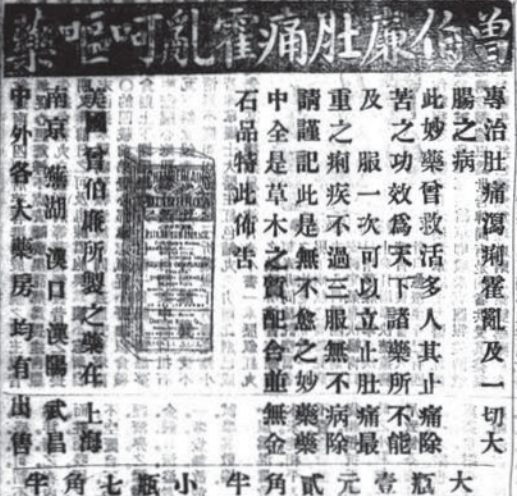 曾伯廉肚痛霍亂呵嘔藥
專治肚痛瀉痢霍亂及一切大
腸之病
此妙藥曾救活多人其止痛除
苦之功效爲天下諸藥所不能
及 服一次可以立止肚痛最
重之痢疾不過三服無不病除
請謹記此是無不愈之妙藥藥
中全是草木之質配合並無金
石品特此佈告
美國曾伯廉所製之藥在 上海
南京 蕪湖 漢口 漢陽 武昌
中外各大藥房均有出售
大瓶壹元貳角半 小瓶七角半